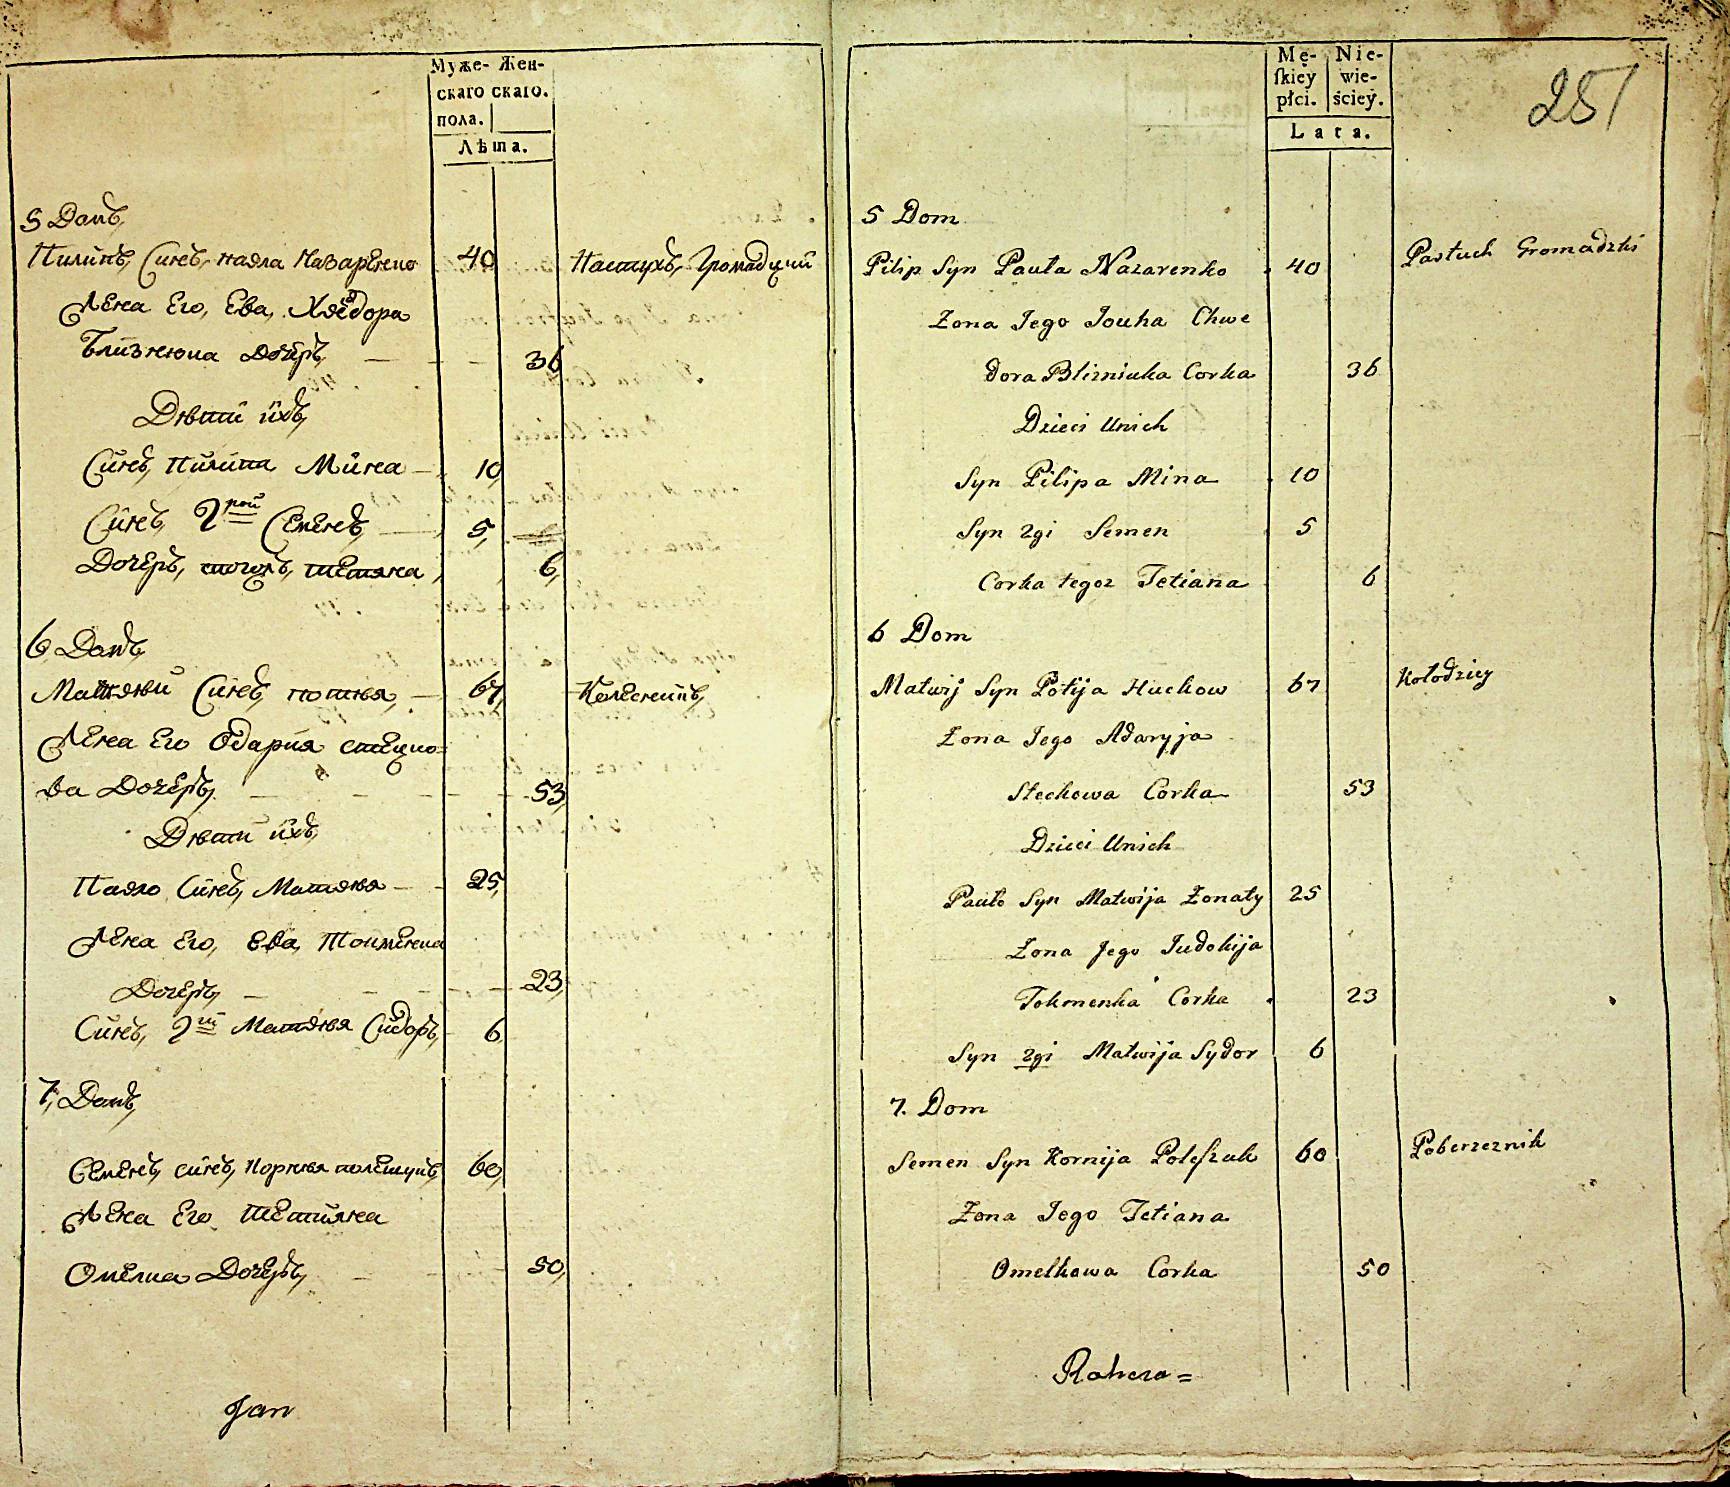 Муже- Жен-
скаго скаго.
пола.
Лѣта.
5 Домъ,
Пилипъ, Синъ, павла Назаренко 40 Пастухъ, Громадцкий
Жена Его, Ева, Хведора
Близнюка Дочеръ, 36
Дѣти ихъ,
Синъ, пилипа Мина 10,
Синъ, 2рой Семенъ, 5,
Дочеръ, тогожъ, тетяна, 6,
6, Домъ,
Матвѣй Синъ, потѣя, 67, Колесникъ,
Жена Его Одария стецко=
ва Дочеръ, 53,
Дѣти ихъ,
Павло Синъ, Матвѣя 25,
Жена Его, Ева, Токменка
Дочеръ, 23,
Синъ, 2й Матвѣя Сидоръ, 6,
7, Домъ,
Семенъ, синъ, Корнѣя полещукъ, 60,
Жена Его Тетияна
Омелка Дочеръ, 50,
Jan
Mę- Nie-
ſkiey wie-
płci. ściey.
Lata.
251
5 Dom
Pilip Syn Pauła Nazarenko 40 Pastuch Gromadzki
Żona Jego Jouha Chwe
dora Blizniuka Corka 36
Dzieci Unich
Syn Pilipa Mina 10
Syn 2gi Semen 5
Corka tegoz Tetiana 6
6 Dom
Matwij Syn Potija Huckow 67 Kołodziey
Żona Jego Adaryja
Steckowa Corka 53
Dzieci Unich
Pauło Syn Matwija Żonaty 25
Żona Jego Judokija
Tokmenka Corka 23
Syn 2gi Matwija Sydor 6
7. Dom
Semen Syn Kornija Poleſzuk 60 Pobereznik
Żona Jego Tetiana
Omelkowa Corka 50